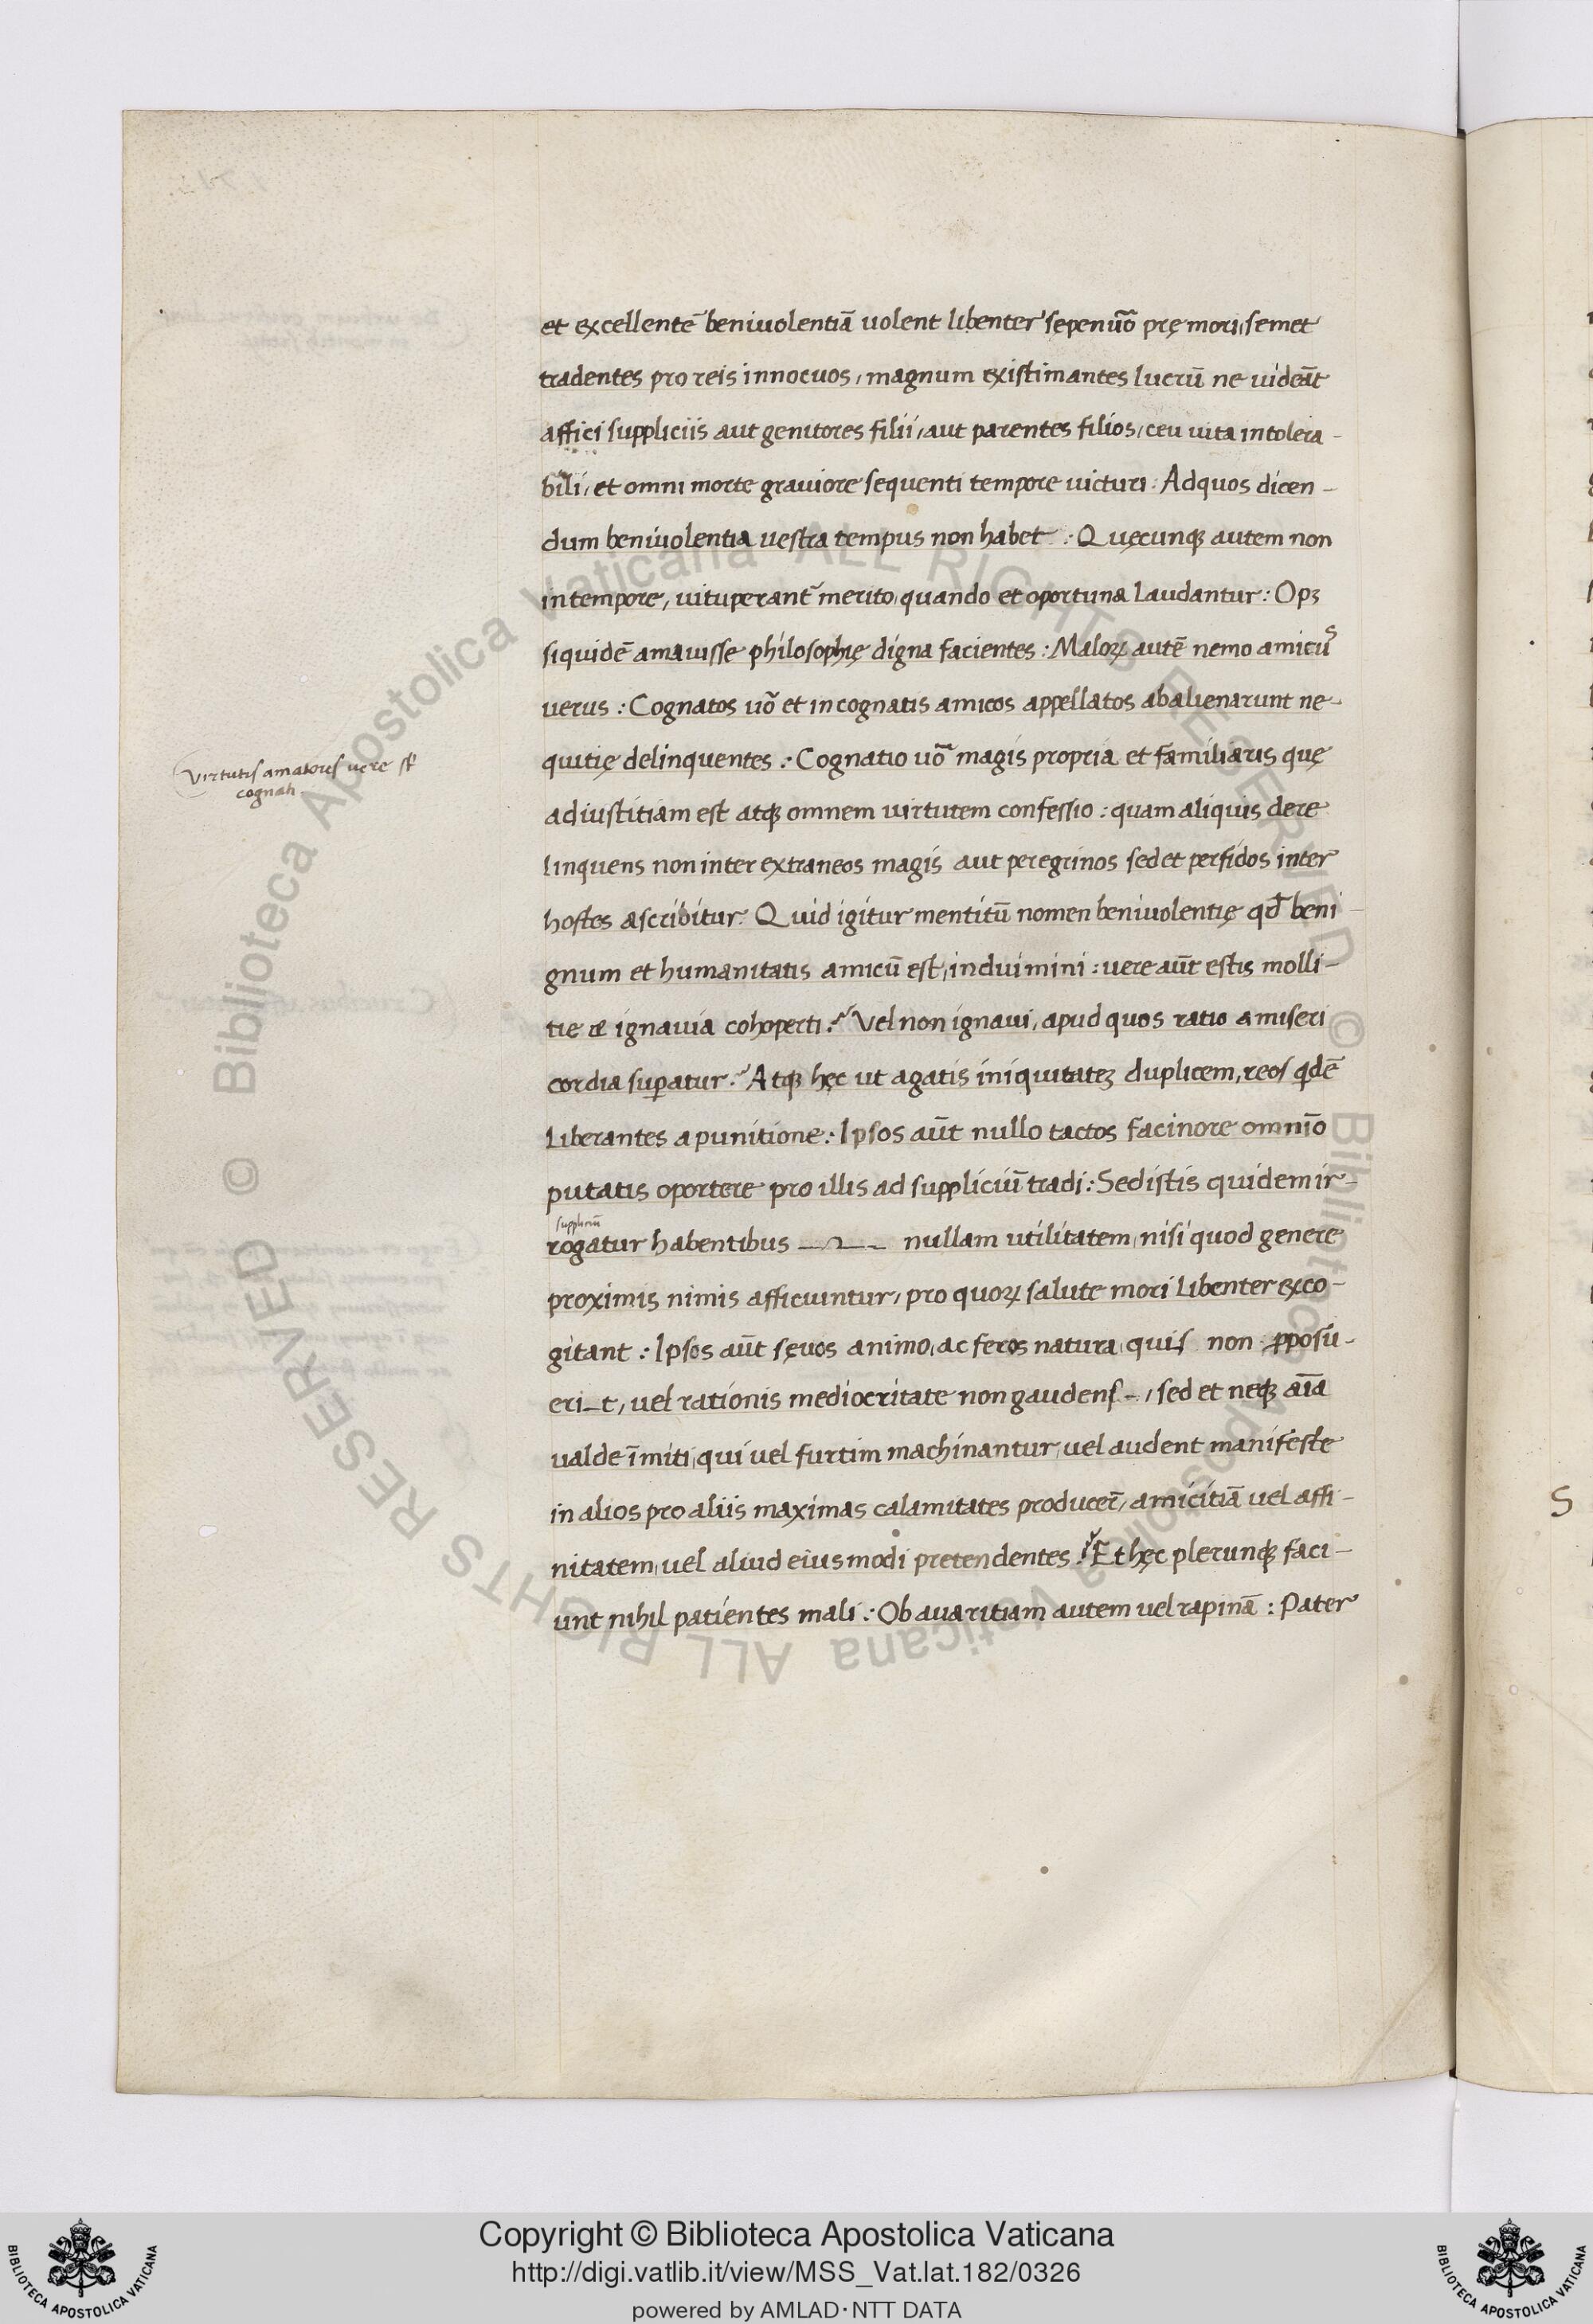 et excellentē beniuolentiā uolent libenter sępenūo pręmori, semet
tradentes pro reis innocuos, magnum existimantes lucrū ne uideāt
affici suppliciis aut genitores filii, aut parentes filios, ceu uita intolera-
bili, et omni morte grauiore sequenti tempore uicturi: Ad quos dicen-
dum beniuolentia uestra tempus non habet: Quęcunqꝫ autem non
in tempore, uituperant᷑ merito, quando et oportuna laudantur: Opꝫ
siquidē amauisse philosophię digna facientes: Maloꝝ autē nemo amicus
uerus: Cognatos uō et incognatis amicos appellatos abalienarunt ne-
quitię delinquentes: Cognatio uō magis propria et familiaris quę
Virtutis amatores uere sūt
cognati
ad iustitiam est atqꝫ omnem uirtutem confessio: quam aliquis dere
linquens non inter extraneos magis aut peregrinos sed et perfidos inter
hostes ascribitur. Quid igitur mentitū nomen beniuolentię qđ beni-
gnum et humanitatis amicū est, induimini: uere aūt estis molli-
tie æ ignauia cohoperti: Vel non ignaui, apud quos ratio a miseri
cordia suꝑatur. Atqꝫ hęc ut agatis iniquitateꝫ duplicem, reos qdē
liberantes a punitione: Ipsos aūt nullo tactos facinore omnīo
putatis oportere pro illis ad suppliciū tradi: Sed istis quidem ir-
suppliciū
rogatur habentibus — nullam utilitatem, nisi quod genere
proximis nimis afficiuntur, pro quoꝝ salute mori libenter exco-
gitant: Ipsos aūt sęuos animo, ac feros natura, quis non ꝓposu-
eri-t, uel rationis mediocritate non gaudens -, sed et neqꝫ aīa
ualde īmiti, qui uel furtim machinantur, uel audent manifeste
in alios pro aliis maximas calamitates producer̄, amicitiā uel affi-
nitatem, uel aliud eiusmodi pretendentes: Et hęc plerunqꝫ faci-
unt nihil patientes mali: Ob auaritiam autem uel rapinā: Pater
S
Copyright © Biblioteca Apostolica Vaticana
http://digi.vatlib.it/view/MSS_Vat.lat.182/0326
powered by AMLAD·NTT DATA
BIBLIOTECA APOSTOLICA VATICANA
BIBLIOTECA APOSTOLICA VATICANA
© Biblioteca Apostolica Vaticana ALL RIGHTS RESERVED
© Biblioteca Apostolica Vaticana ALL RIGHTS RESERVED